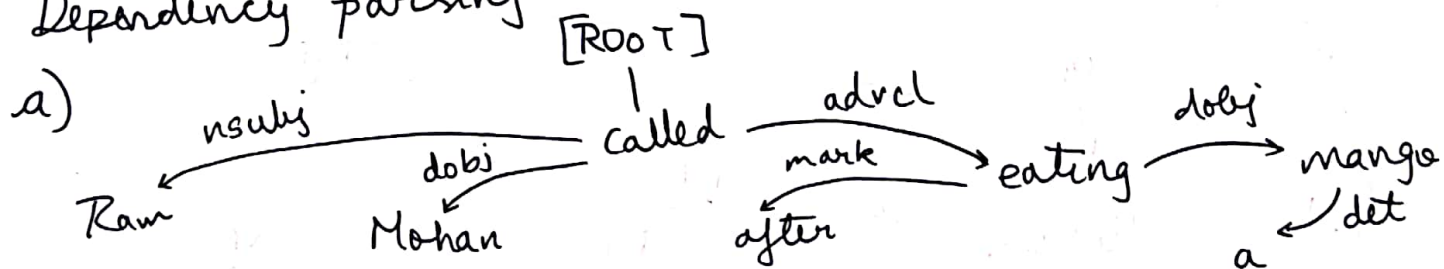 Dependency parsing
[ROOT]
a)
nsubj called advcl dobj
dobj mark eating mango
Ram Mohan after det
a